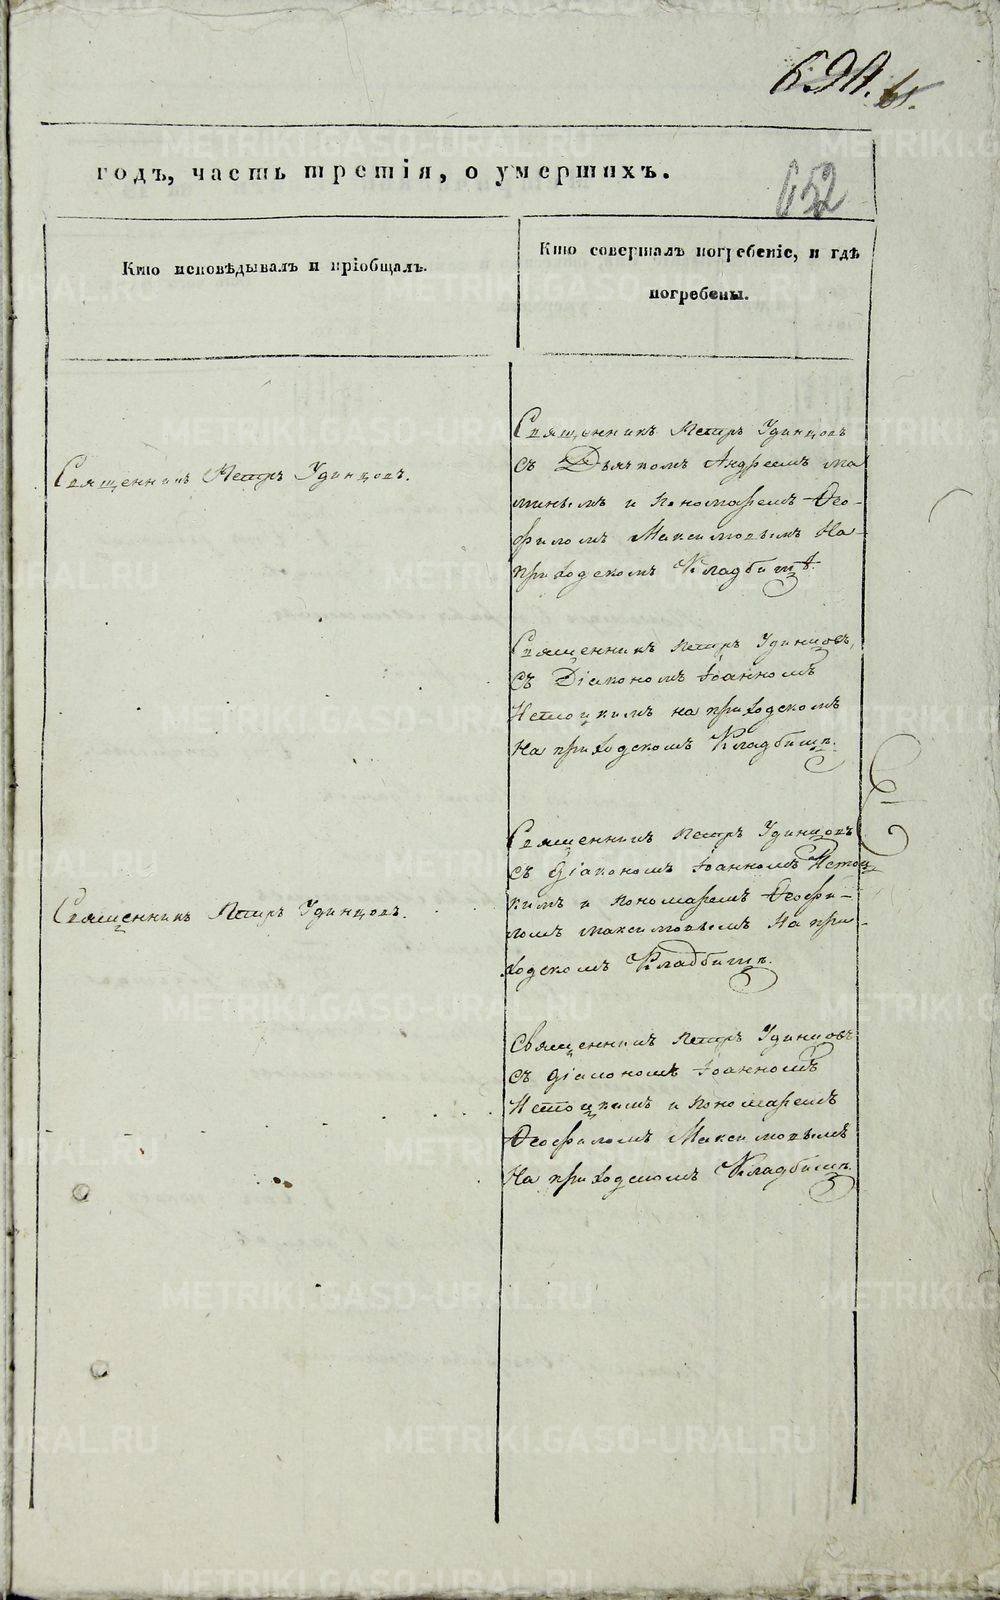 652
годъ, часть третія, о умершихъ.
Кто исповѣдывалъ и пріобщалъ.
Кто совершалъ погребеніе, и гдѣ
погребены.
Священникъ Петръ Удинцовъ.
Священникъ Петръ Удинцовъ
съ Дьячкомъ Андреемъ Ма
минымъ и Пономаремъ Ѳео-
филомъ Максимовымъ На
приходскомъ Кладбищѣ.
Священникъ Петръ Удинцовъ,
съ Діакономъ Іоанномъ
на приходскомъ
На приходскомъ Кладбищѣ.
Священникъ Петръ Удинцовъ.
Священникъ Петръ Удинцовъ
съ діакономъ Іоанномъ
кимъ и Пономаремъ Ѳеофи-
ломъ Максимовымъ На при-
ходскомъ Кладбищѣ.
Священникъ Петръ Удинцовъ
съ діакономъ Іоанномъ
и Пономаремъ
Ѳеофиломъ Максимовымъ
На приходскомъ Кладбищѣ.
METRIKI.GASO-URAL.RU